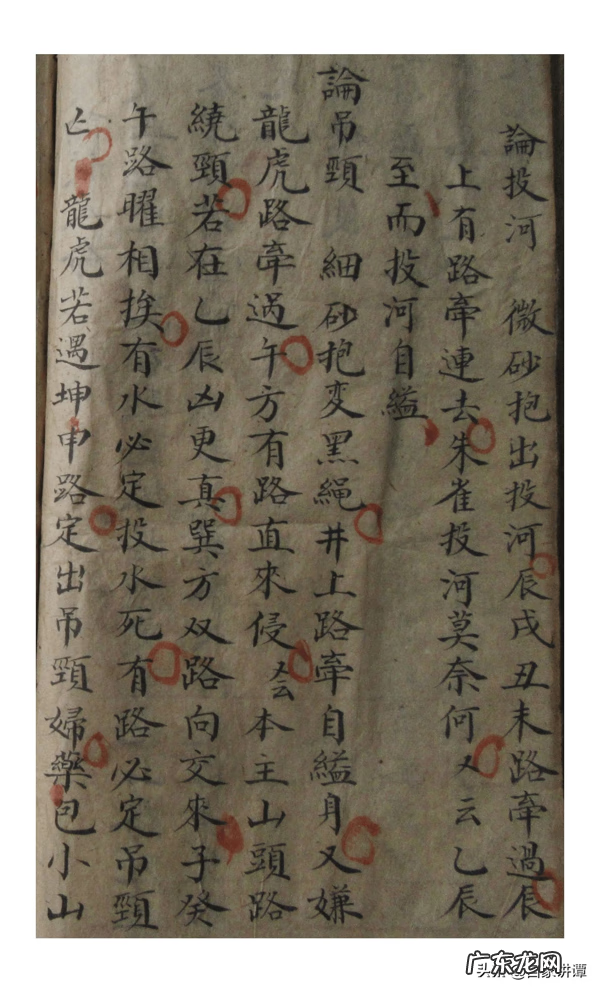 論投河　微砂抱出投河辰戌丑未路牽過辰
上有路牽連去朱雀投河莫奈何又云乙辰
至而投河自縊
論吊頸　細砂抱变黑繩井上路牽自縊身又嫌
龍虎路牽過午方有路直來侵　云本主山頭路
繞頸若在乙辰凶更真巽方双路向交來子癸
午路曜相挨有水必定投水死有路必定吊頸
亡　龍虎若遇坤申路定出吊頸婦藥包小山
广东龙网
头条 @百家讲谭